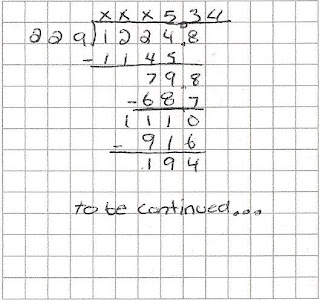 x x x 5.34
229)1224.8
-1145
79.8
-68.7
1110
- 916
194
to be continued...